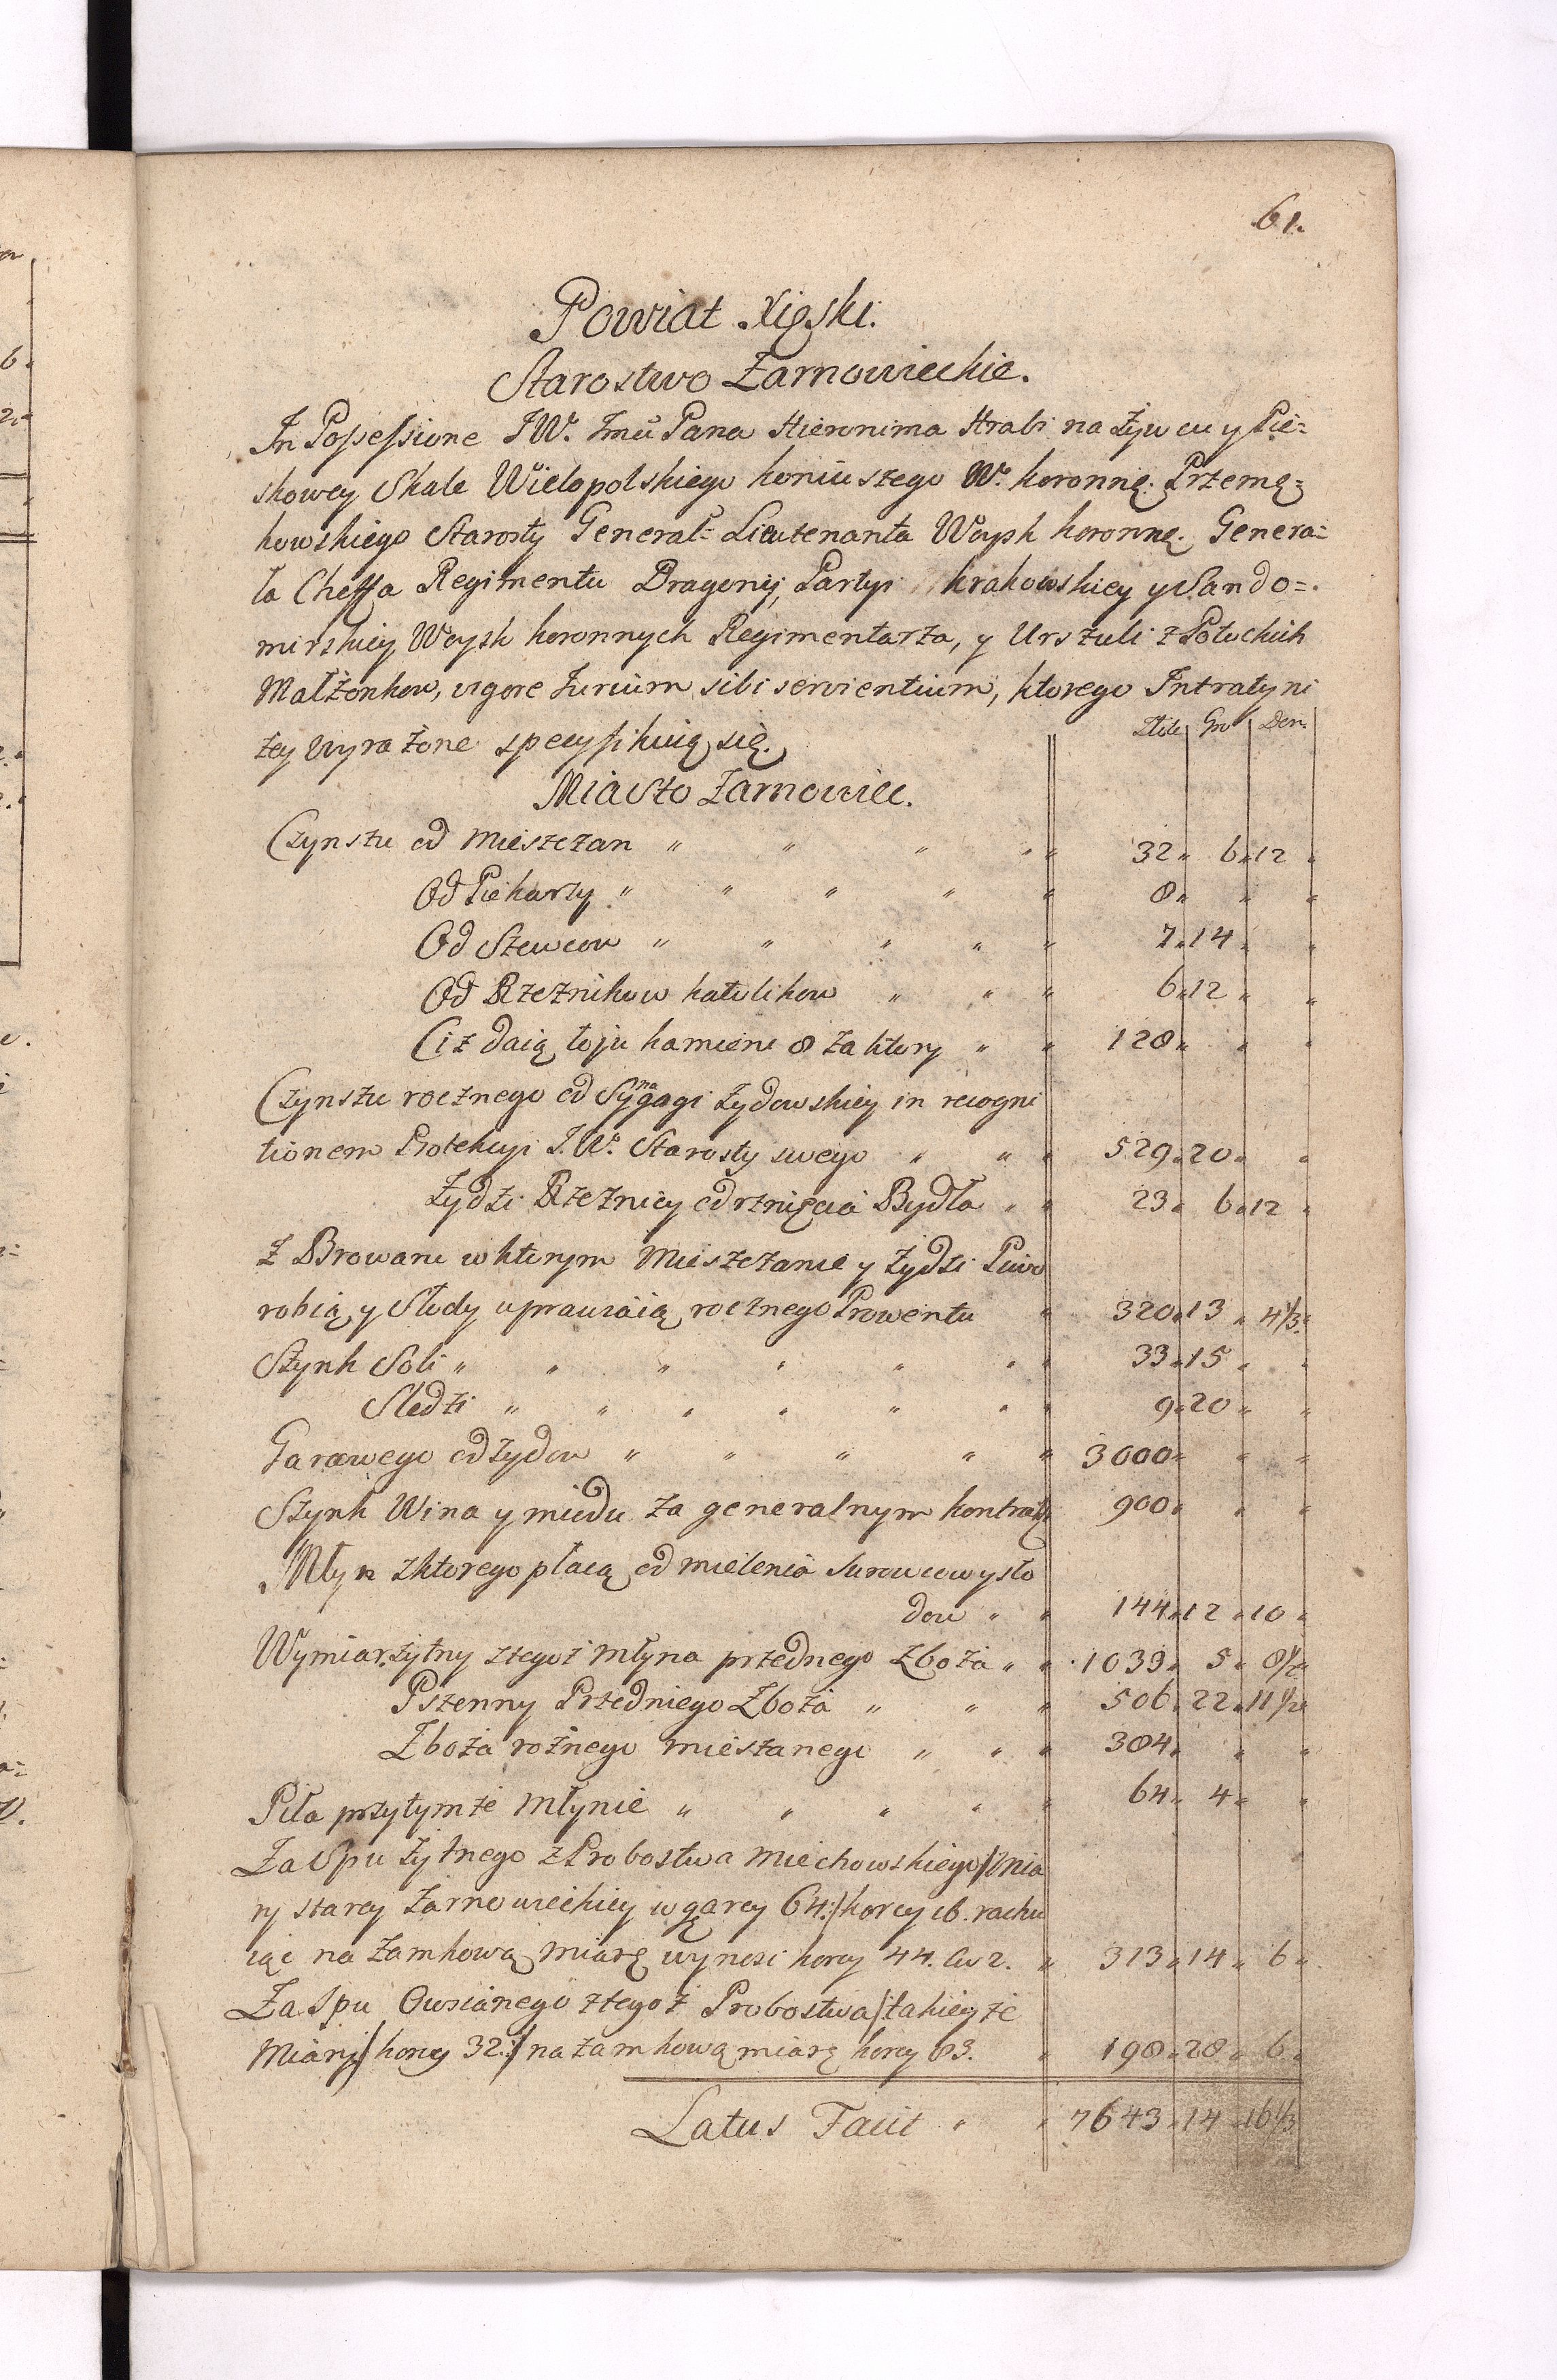 61.
Powiat Xięski.
Starostwo Żarnowieckie.
In Possessione JW. Jmći Pana Hieronima Hrabi na Żywcu y Pie=
skowey Skale Wielopolskiego koniuszego W. koronnę. Przemę=
kowskiego Starosty General= Lieutenanta Woysk koronnę. Genera=
ła Cheffa Regimentu Dragonij, Partyi krakowskiey y Sando=
mirskiey Woysk koronnych Regimentarza, y Urszuli z Potockich
Małżonkow, vigore Jurium sibi servientium, ktorego Intraty ni
żey wyrażone specyfikuią się.
Złote Gro Den.
Miasto Żarnowiec.
Czynszu od Mieszczan " " " " " 32 " 6 " 12 "
Od Piekarzy " " " " " 8 " " "
Od Szewcow " " " " " 7 " 14 " "
Od Rzeznikow katolikow " " " 6 " 12 " "
Ciż daią łoju kamieni 8 za ktory " " 128 " " "
Czynszu rocznego od Synagagi Żydowskiey in recogni
tionem Protekcyi J.W. Starosty swego " " " 529 " 20 " "
Żydzi Rzeznicy od rznięcia Bydła " " 23 " 6 " 12 "
Z Browaru w ktorym Mieszczanie y Żydzi Piwo
robią y Słody uprawiaią rocznego Prowentu " 320 " 13 " 4 1/3 "
Szynk Soli " " " " " " " 33 " 15 " "
Sledzi " " " " " " " 9 " 20 " "
Garcowego od Żydow " " " " " 3000 " " "
Szynk Wina y miedu za generalnym kontrak " 900 " " "
Młyn z ktorego płacą od mielenia Surowcow y sło
dow " " 144 " 12 " 10 "
Wymiar żytny z tegoż Młyna przednego Zboża " " 1039 " 5 " 8 1/2 "
Pszenny Przedniego Zboża " " " 506 " 22 " 11 1/2
Zboża rożnego mieszanego " " " 384 " " "
Piła przy tymże Młynie " " " " " 64 " 4 " "
Za Spu Żytnego z Probostwa Miechowskiego /: mia
ry starey Żarnowieckiey w garcy 64 :/ korcy 16. rachu
iąc na Zamkową miarę wynosi korcy 44. cw 2. " 313 " 14 " 6 "
Za Spu Owsianego z tegoż Probostwa /: takieyże
Miary :/ korcy 32 :/ na zamkową miarę korcy 63. " 198 " 28 " 6 "
Latus Facit " " 7643 " 14 " 16 1/3